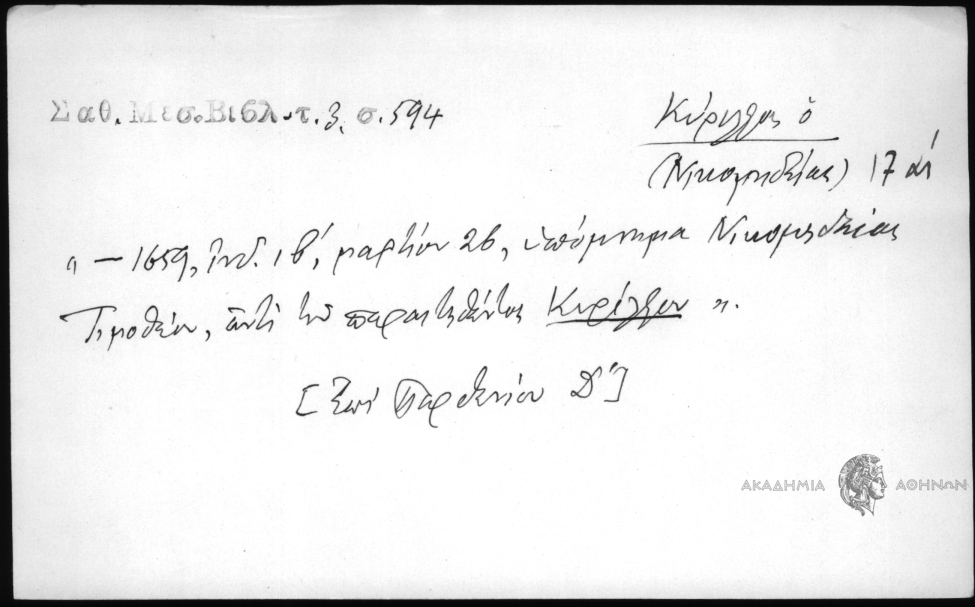 Σαθ. Μεσ. Βιβλ. τ. 3. σ. 594
Κύριλλος ὁ
(Νικομηδείας) 17 αἰ
" — 1659, ἰνδ. ιβ΄, μαρτίου 26, ὑπόμνημα Νικομηδείας
Τιμοθέου, ἀντὶ τοῦ παραιτηθέντος Κυρίλλου ".
[ἐπὶ Παρθενίου Δ΄]
ΑΚΑΔΗΜΙΑ ΑΘΗΝΩΝ